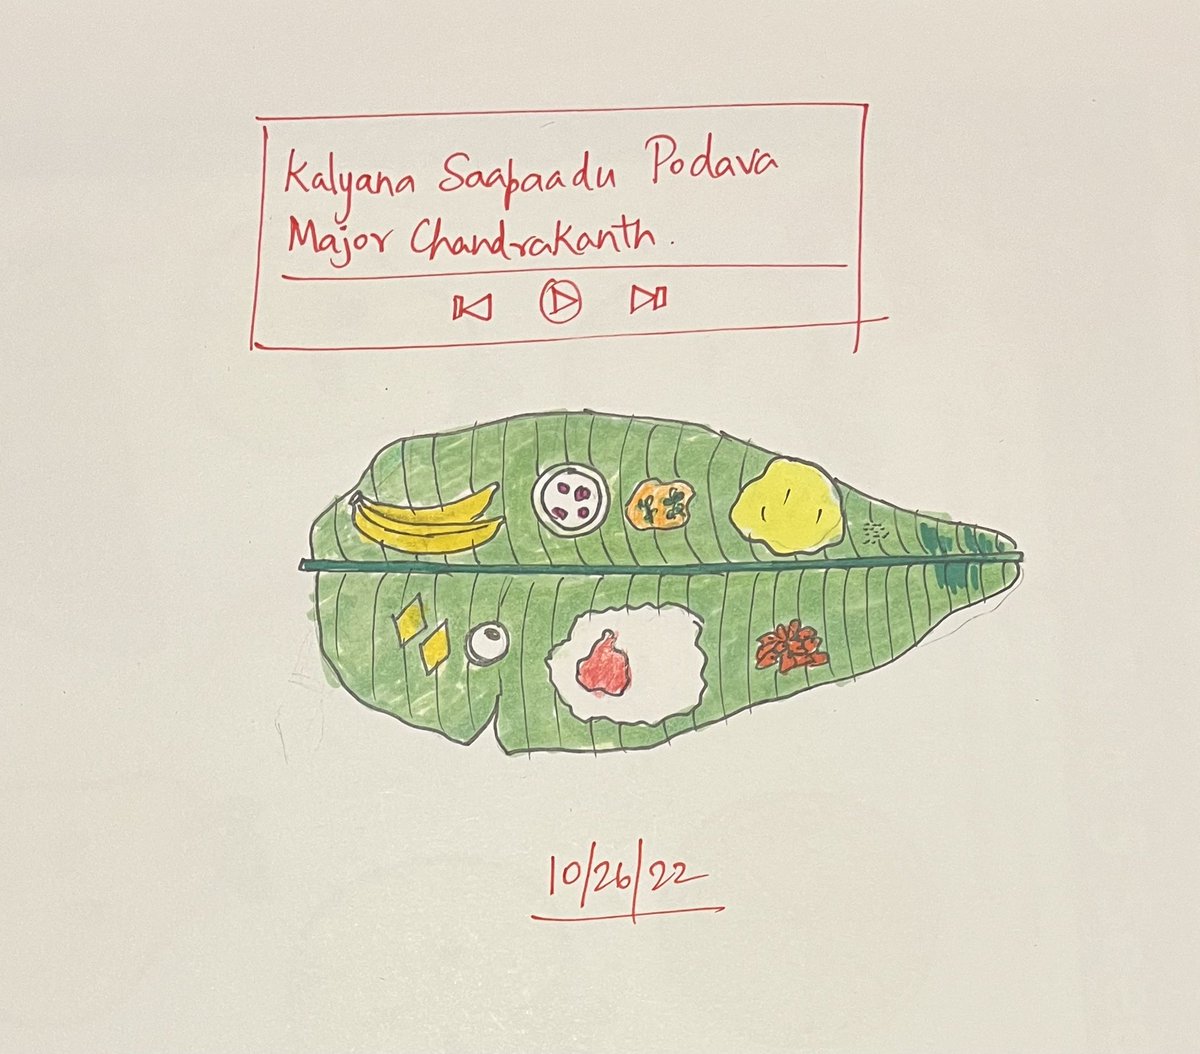 Kalyana Saapaadu Podava
Major Chandrakanth.
10/26/22